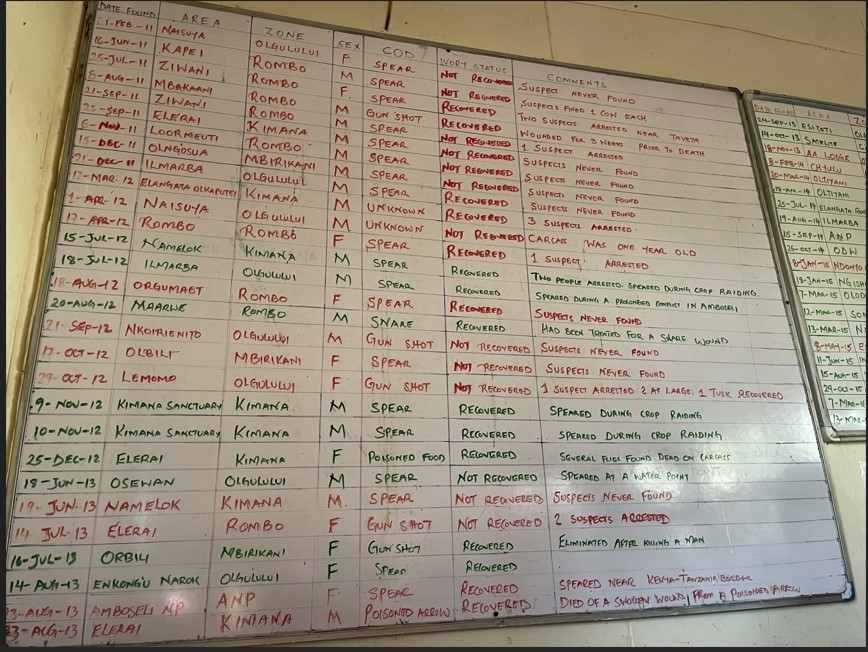 DATE FOUND AREA ZONE SEX COD IVORY STATUS COMMENTS
21-FEB-11 NAISUYA OLGULULUI F SPEAR NOT RECOVERED SUSPECT NEVER FOUND
16-JUN-11 KAPEI ROMBO M SPEAR NOT RECOVERED SUSPECTS FINED 1 COW EACH
25-JUL-11 ZIWANI ROMBO F SPEAR RECOVERED TWO SUSPECTS ARRESTED NEAR TAVETA
8-AUG-11 MBAKAANI ROMBO M GUN SHOT RECOVERED WOUNDED FOR 3 WEEKS PRIOR TO DEATH
21-SEP-11 ZIWANI ROMBO M SPEAR NOT RECOVERED 1 SUSPECT ARRESTED
25-SEP-11 ELERAI KIMANA M SPEAR NOT RECOVERED SUSPECTS NEVER FOUND
6-NOV-11 LOORMEUTI ROMBO M SPEAR NOT RECOVERED SUSPECTS NEVER FOUND
15-DEC-11 OLNGOSUA MBIRIKANI M SPEAR NOT RECOVERED SUSPECTS NEVER FOUND
21-DEC-11 ILMARBA OLGULULUI M SPEAR RECOVERED SUSPECTS NEVER FOUND
12-MAR-12 ELANGATA OLKAPUTEI KIMANA M UNKNOWN RECOVERED 3 SUSPECTS ARRESTED
1-APR-12 NAISUYA OLGULULUI M UNKNOWN NOT RECOVERED CARCAS WAS ONE YEAR OLD
17-APR-12 ROMBO ROMBO F SPEAR RECOVERED 1 SUSPECT ARRESTED
15-JUL-12 NAMELOK KIMANA M SPEAR RECOVERED TWO PEOPLE ARRESTED. SPEARED DURING CROP RAIDING.
18-JUL-12 ILMARBA OLGULULUI M SPEAR RECOVERED SPEARED DURING A PROLONGED CONFLICT IN AMBOSELI
18-AUG-12 ORGUMAET ROMBO F SPEAR RECOVERED SUSPECTS NEVER FOUND
20-AUG-12 MAARWE ROMBO M SNARE RECOVERED HAD BEEN TREATED FOR A SNARE WOUND
21-SEP-12 NKOIRIENITO OLGULULUI M GUN SHOT NOT RECOVERED SUSPECTS NEVER FOUND
17-OCT-12 OLBILI MBIRIKANI F SPEAR NOT RECOVERED SUSPECTS NEVER FOUND
29-OCT-12 LEMOMO OLGULULUI F GUN SHOT NOT RECOVERED 1 SUSPECT ARRESTED 2 AT LARGE. 1 TUSK RECOVERED
9-NOV-12 KIMANA SANCTUARY KIMANA M SPEAR RECOVERED SPEARED DURING CROP RAIDING
10-NOV-12 KIMANA SANCTUARY KIMANA M SPEAR RECOVERED SPEARED DURING CROP RAIDING
25-DEC-12 ELERAI KIMANA F POISONED FOOD RECOVERED SEVERAL FLIES FOUND DEAD ON CARCASS
18-JUN-13 OSEWAN OLGULULUI M SPEAR NOT RECOVERED SPEARED AT A WATER POINT
19-JUN-13 NAMELOK KIMANA M SPEAR NOT RECOVERED SUSPECTS NEVER FOUND
14 JUL-13 ELERAI ROMBO F GUN SHOT NOT RECOVERED 2 SUSPECTS ARRESTED
16-JUL-13 ORBILI MBIRIKANI F GUNSHOT RECOVERED ELIMINATED AFTER KILLING A MAN
14 AUG-13 ENKONGU NAROK OLGULULUI F SPEAR RECOVERED
23-AUG-13 AMBOSELI NP ANP F SPEAR RECOVERED SPEARED NEAR KENYA-TANZANIA BORDER
23-AUG-13 ELERAI KIMANA M POISONED ARROW RECOVERED DIED OF A SWOLLEN WOUND FROM A POISONED ARROW
DATE FOUND AREA
24-SEP-13 ESITETI
14-OCT-13
18-NOV-13 AA LODGE
8-FEB-14 CHYULU
20-MAR-14 OLTIYANI
OLTIYANI
25-JUL-14 ELANGATA
19-AUG-14 ILMARBA
15-SEP-14 ANP
26-OCT-14
8-JAN-15
13-JAN-15
7-MAR-15
12-MAR-15
13-MAR-15
8-MAY-15
11-JUN-15
15-AUG-15
29-OCT-15